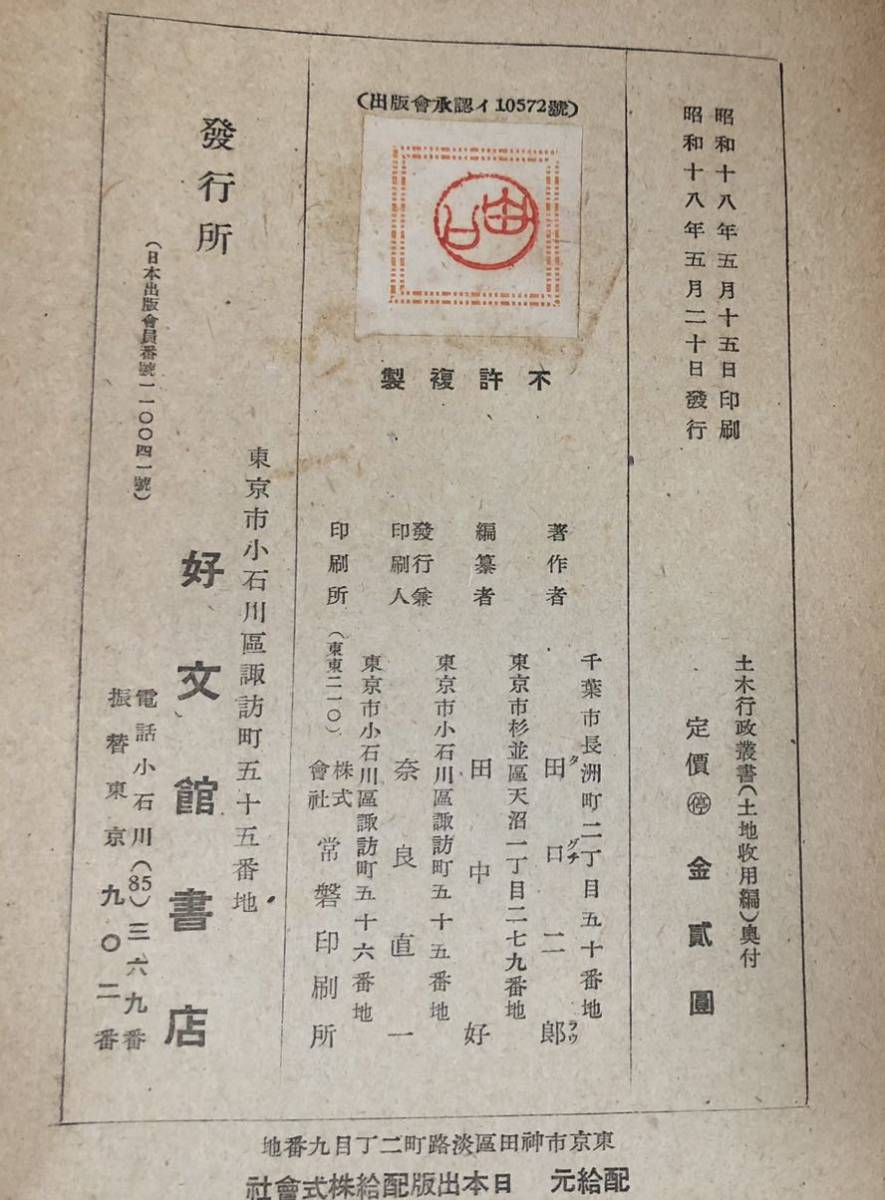 昭和十八年五月十五日印刷
昭和十八年五月二十日發行
土木行政叢書(土地收用編)奧付
定價㊡金貳圓
(出版會承認イ10572號)
不許複製
千葉市長洲町二丁目五十番地
著作者 田口二郎
タグチ ラウ
東京市杉並區天沼一丁目二七九番地
編纂者 田中好
東京市小石川區諏訪町五十五番地
發行兼印刷人 奈良直一
東京市小石川區諏訪町五十六番地
印刷所 (東東二一〇) 株式會社 常磐印刷所
東京市小石川區諏訪町五十五番地
發行所 好文館書店
(日本出版會員番號一一〇〇四一號)
電話小石川(85)三六九番
振替東京九〇二番
東京市神田區淡路町二丁目九番地
配給元 日本出版配給株式會社